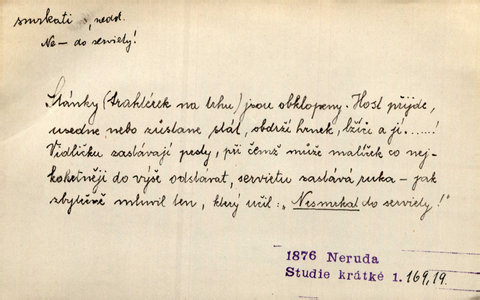 smrkati s, nedok.
Ne — do serviety!
Stánky (trahtérek na trhu) jsou obklopeny. Host přijde,
usedne nebo zůstane stát, obdrží hrnek, lžíci a jí......!
Vidličku zastávají prsty, při čemž může malíček co nej-
koketněji do výše odstávat, servietu zastává ruka – jak
zbytečně mluvil ten, který učil: „Nesmrkat do serviety!"
1876 Neruda
Studie krátké 1. 169,19.